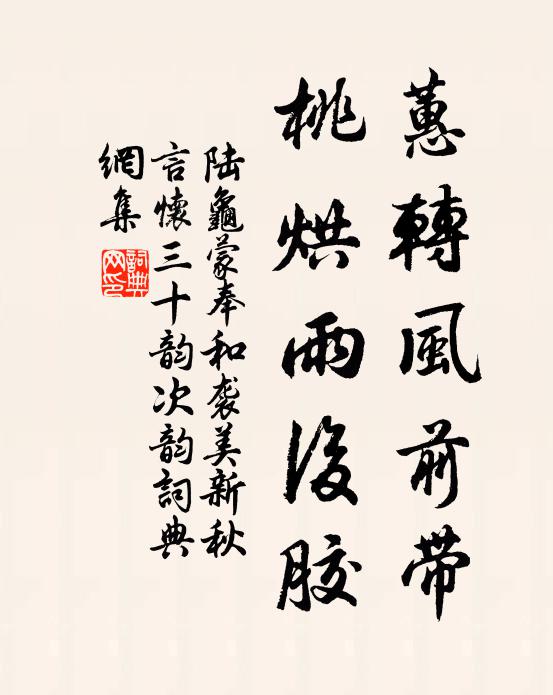 蕙轉風前帶
桃烘雨後胶
陆龜蒙奉和袭美新秋
言懷三十韵次韵詞典
網集
詞典
网印